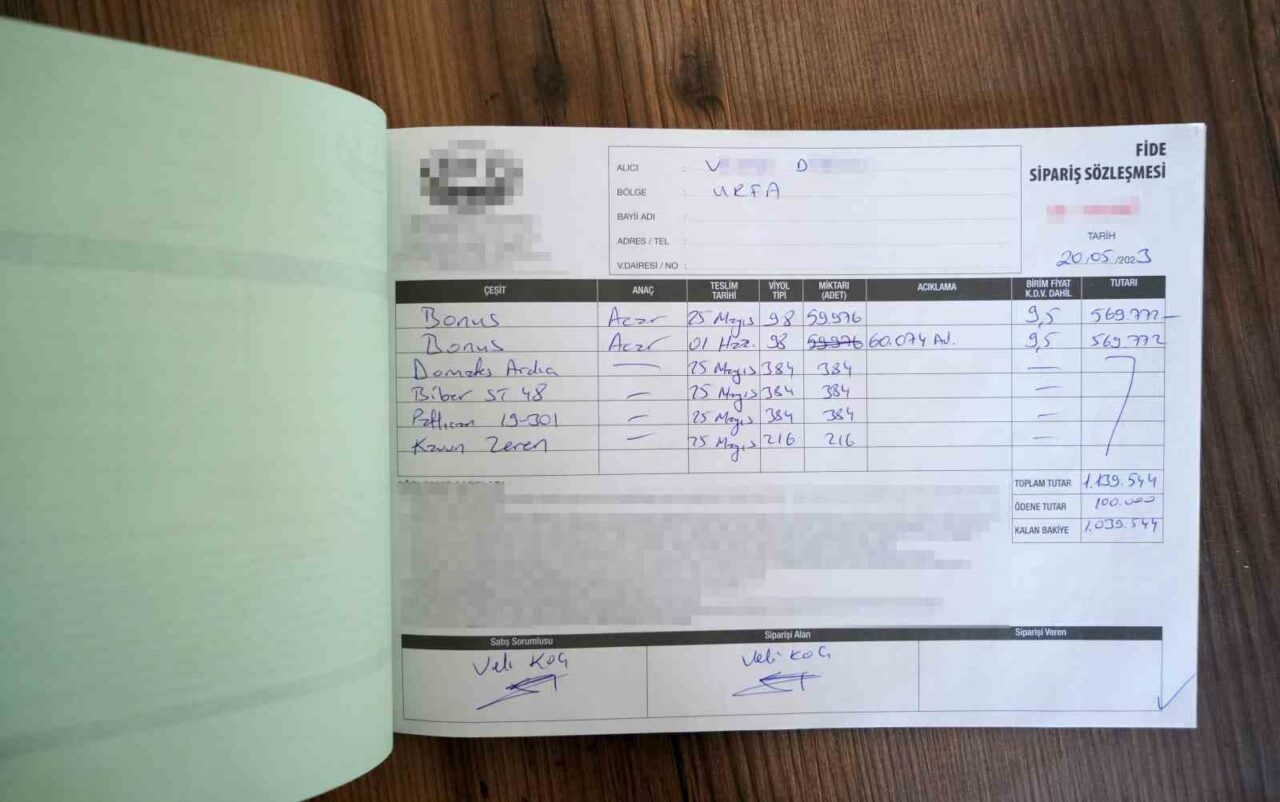 FİDE
SİPARİŞ SÖZLEŞMESİ
ALICI : V D
BÖLGE : URFA
BAYİİ ADI :
ADRES / TEL :
V.DAİRESİ / NO :
TARİH
20.05/2023
ÇEŞİT ANAÇ TESLİM TARİHİ VİYOL TİPİ MİKTARI (ADET) ACIKLAMA BİRİM FİYAT K.D.V. DAHİL TUTARI
Bonus Acar 25 Mayıs 98 59976 9,5 569.772
Bonus Acar 01 Haz. 98 59976 60.074 Ad. 9,5 569.772
Domates Ardıa — 25 Mayıs 384 384 —
Biber ST 48 — 25 Mayıs 384 384 —
Patlıcan 19-301 — 25 Mayıs 384 384 —
Kavun Zeren — 25 Mayıs 216 216 —
TOPLAM TUTAR 1.139.544
ÖDENE TUTAR 100.000
KALAN BAKİYE 1.039.544
Satış Sorumlusu Siparişi Alan Siparişi Veren
Veli KOÇ Veli KOÇ